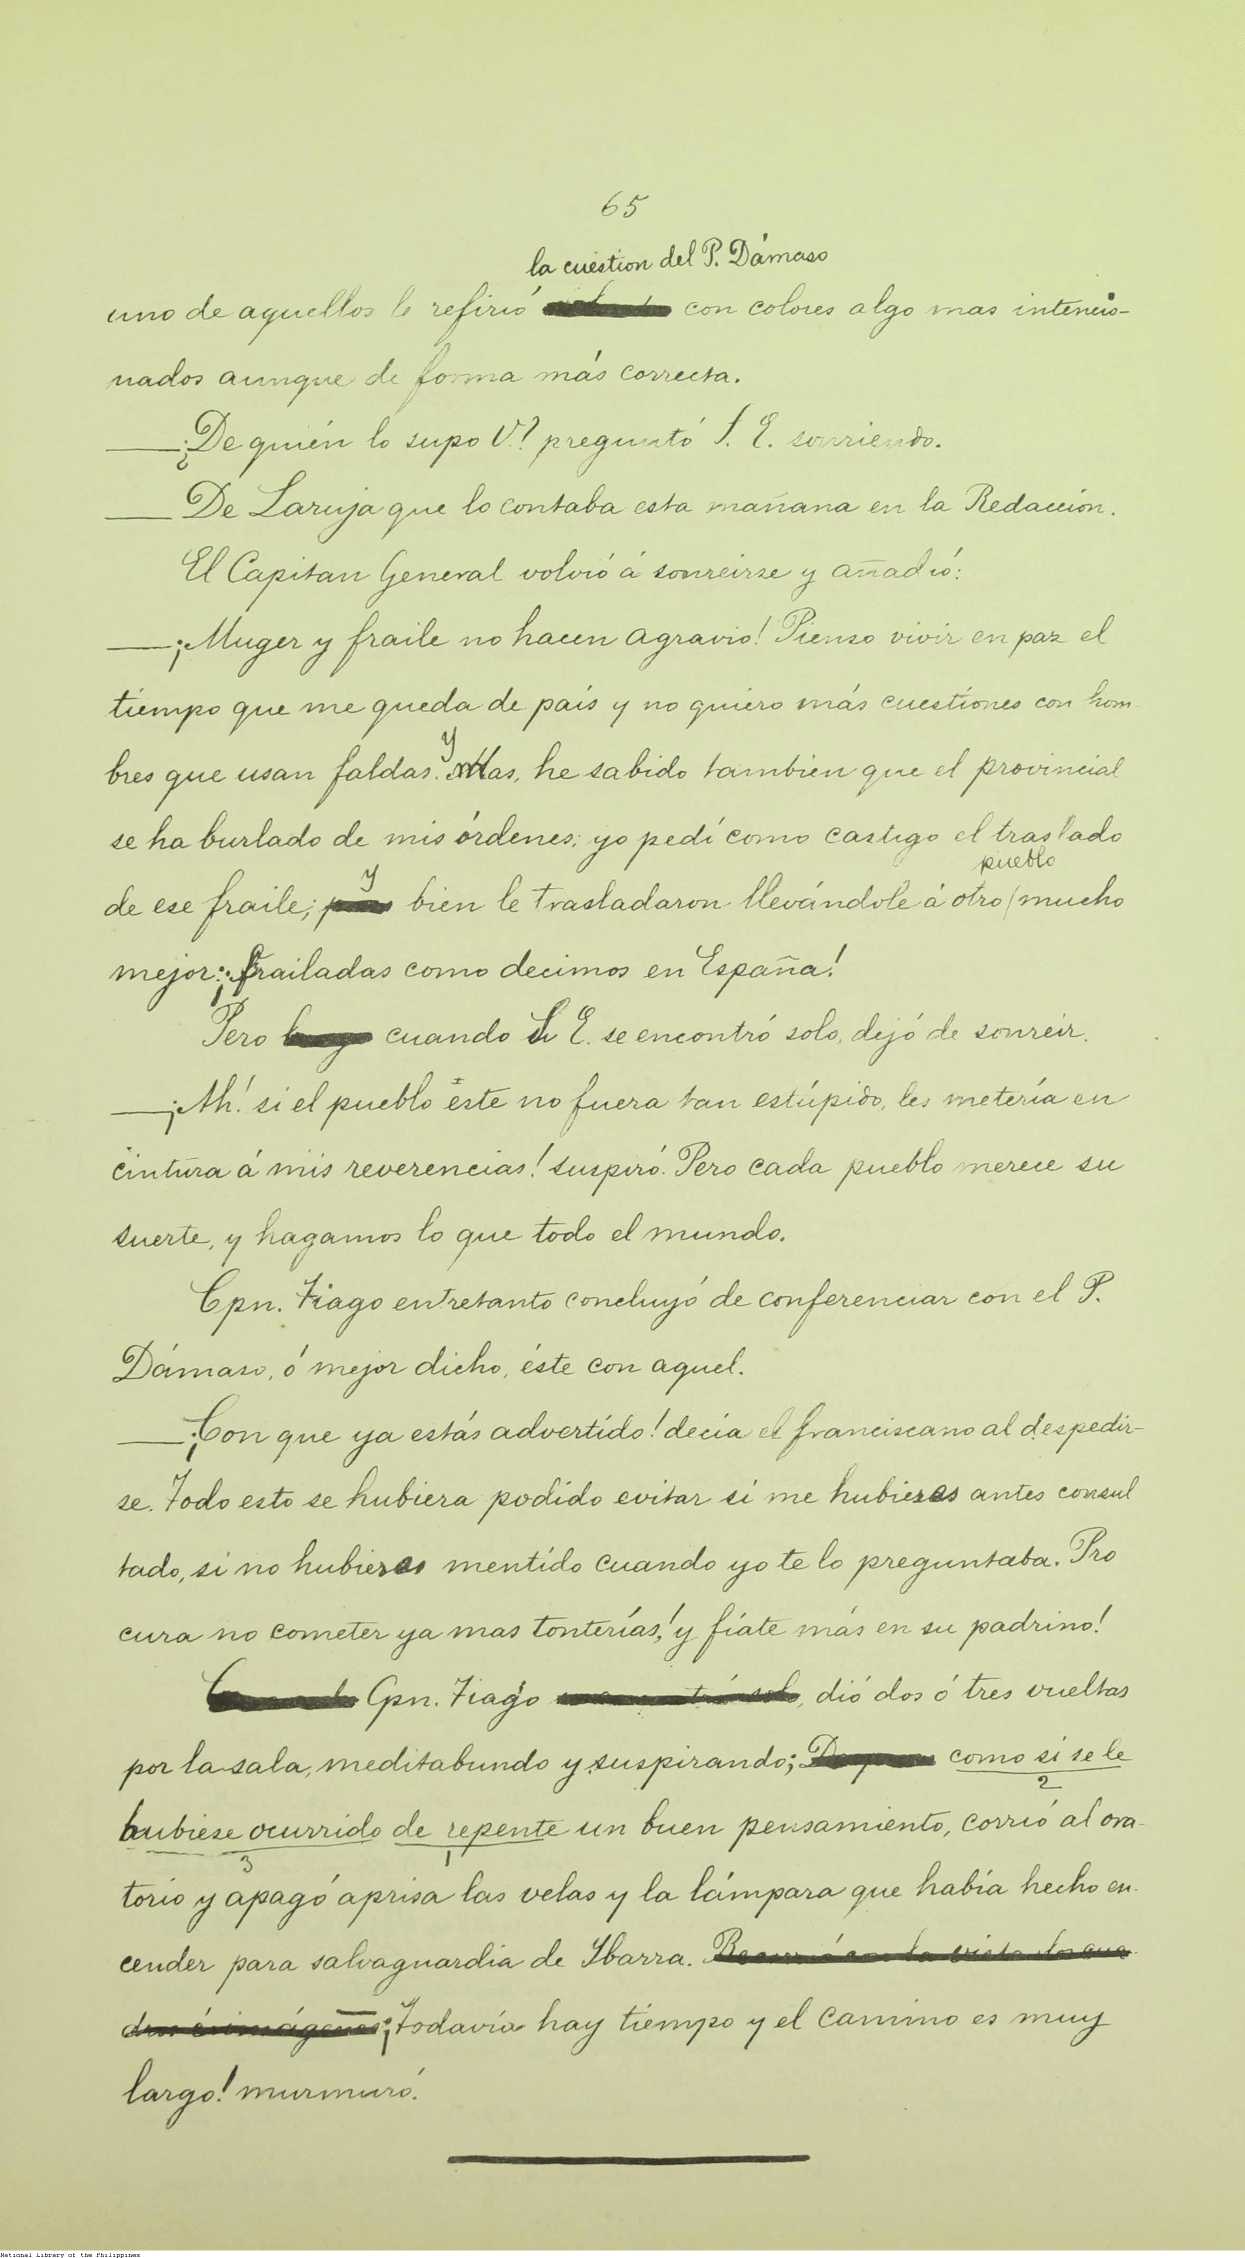 65
la cuestion del P. Dámaso
uno de aquellos le refirió con colores algo mas intencio-
nados aunque de forma más correcta.
—¿De quién lo supo V.? preguntó S. E. sonriendo.
— De Laruja que lo contaba esta mañana en la Redacción.
El Capitan General volvió á sonreirse y añadió:
—¡Muger y fraile no hacen agravio! Pienso vivir en paz el
tiempo que me queda de país y no quiero más cuestiones con hom-
y
bres que usan faldas. Mas, he sabido tambien que el provincial
se ha burlado de mis órdenes; yo pedí como castigo el traslado
pueblo
y
de ese fraile; bien le trasladaron llevándole á otro / mucho
mejor: ¡frailadas como decimos en España!
Pero cuando S. E. se encontró solo, dejó de sonreir.
—¡Ah! si el pueblo este no fuera tan estúpido, les metería en
cintura á mis reverencias! suspiró. Pero cada pueblo merece su
suerte, y hagamos lo que todo el mundo.
Cpn. Tiago entretanto concluyó de conferenciar con el P.
Dámaso, ó mejor dicho, éste con aquel.
—¡Con que ya estás advertido! decía el franciscano al despedir-
se. Todo esto se hubiera podido evitar si me hubieras antes consul
tado, si no hubieras mentido cuando yo te lo preguntaba. Pro
cura no cometer ya mas tonterías,! y fíate más en su padrino!
Cpn. Tiago , dió dos ó tres vueltas
por la sala, meditabundo y suspirando; como si se le
2
hubiese ocurrido de repente un buen pensamiento, corrió al ora-
3 1
torio y apagó aprisa las velas y la lámpara que había hecho en-
cender para salvaguardia de Ybarra.
¡Todavía hay tiempo y el camino es muy
largo! murmuró.
National Library of the Philippines